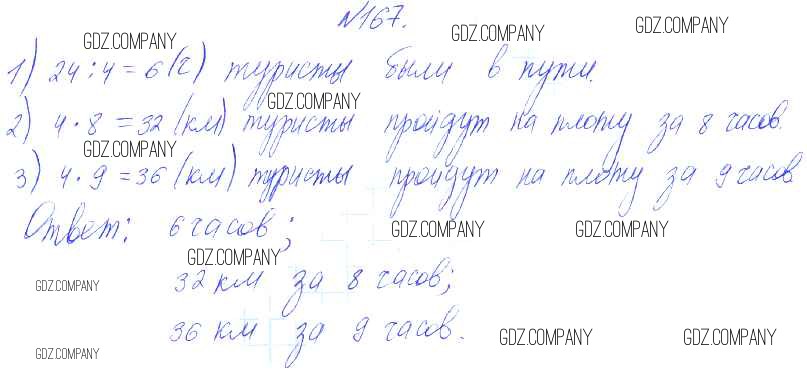 №167.
GDZ.COMPANY GDZ.COMPANY GDZ.COMPANY
1) 24:4=6(ч) туристы были в пути.
GDZ.COMPANY
2) 4·8=32(км) туристы пройдут на плоту за 8 часов.
GDZ.COMPANY
3) 4·9=36(км) туристы пройдут на плоту за 9 часов
Ответ: 6 часов;
GDZ.COMPANY GDZ.COMPANY
GDZ.COMPANY
32 км за 8 часов;
GDZ.COMPANY
36 км за 9 часов.
GDZ.COMPANY GDZ.COMPANY
GDZ.COMPANY